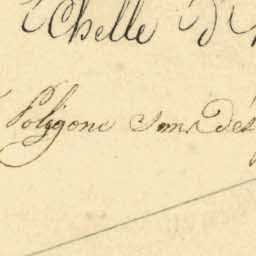 Echelle d'
Polygone sans Dés